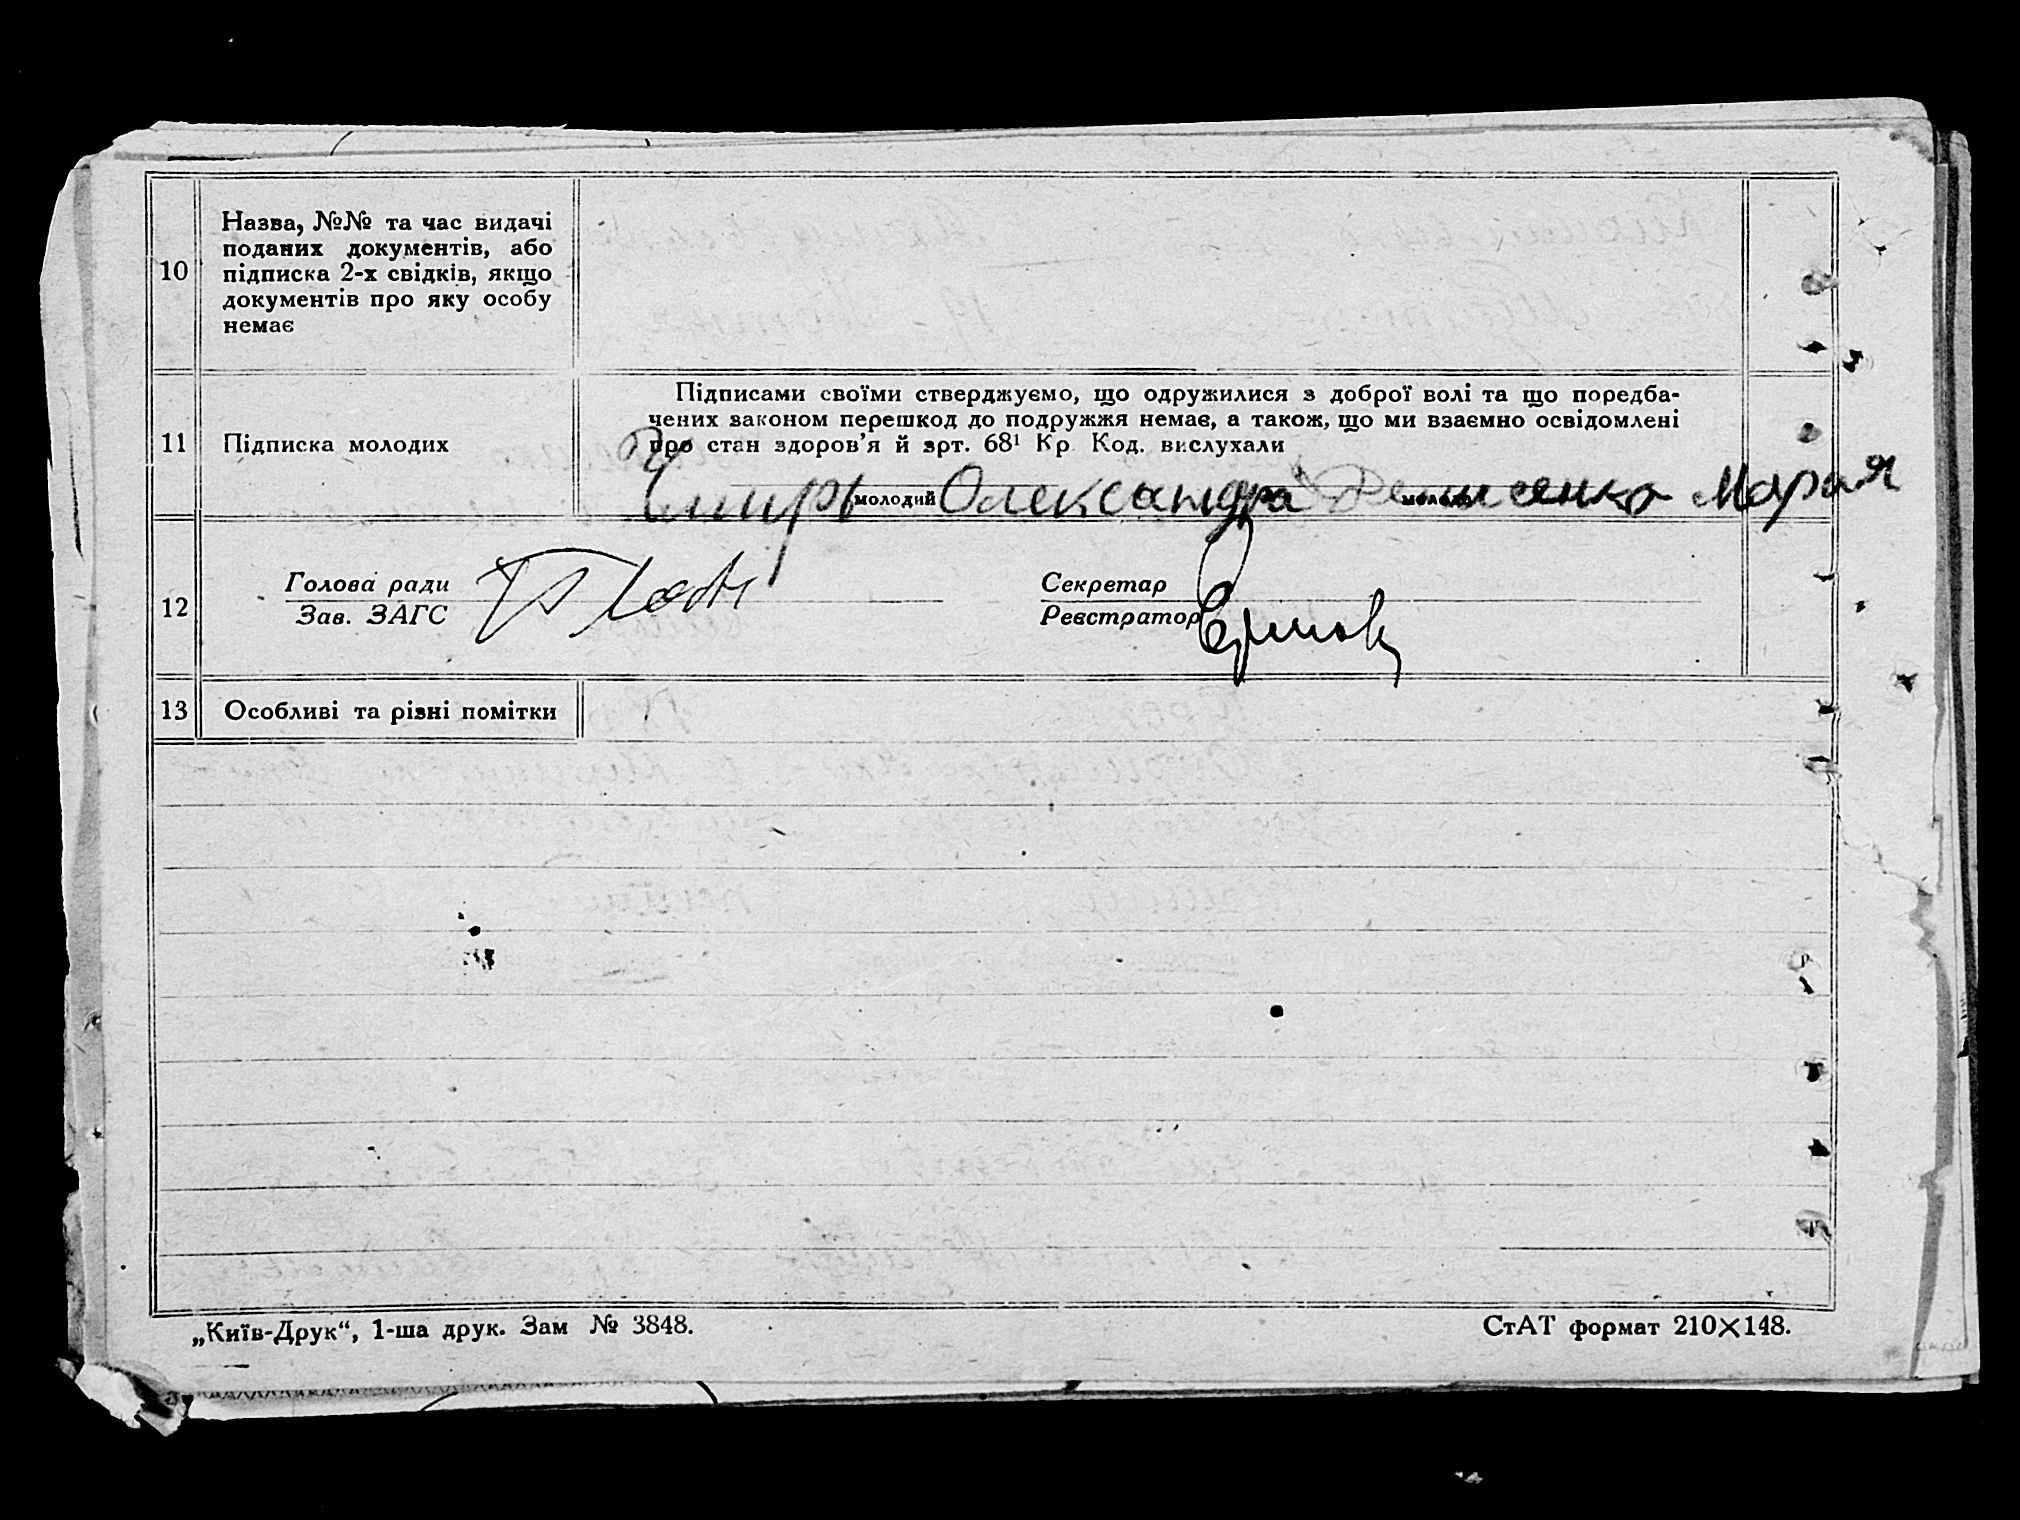 10
Назва, №№ та час видачі
поданих документів, або
підписка 2-х свідків, якщо
документів про яку особу
немає
11
Підписка молодих
Підписами своїми стверджуємо, що одружилися з доброї волі та що поредба-
чених законом перешкод до подружжя немає, а також, що ми взаємно освідомлені
про стан здоров'я й зрт. 68¹ Кр. Код. вислухали
молодий Олександра Денисенко Мария
12
Голова ради
Зав. ЗАГС
Секретар
Реєстратор
13
Особливі та різні помітки
„Київ-Друк“, 1-ша друк. Зам № 3848.
СтАТ формат 210×148.